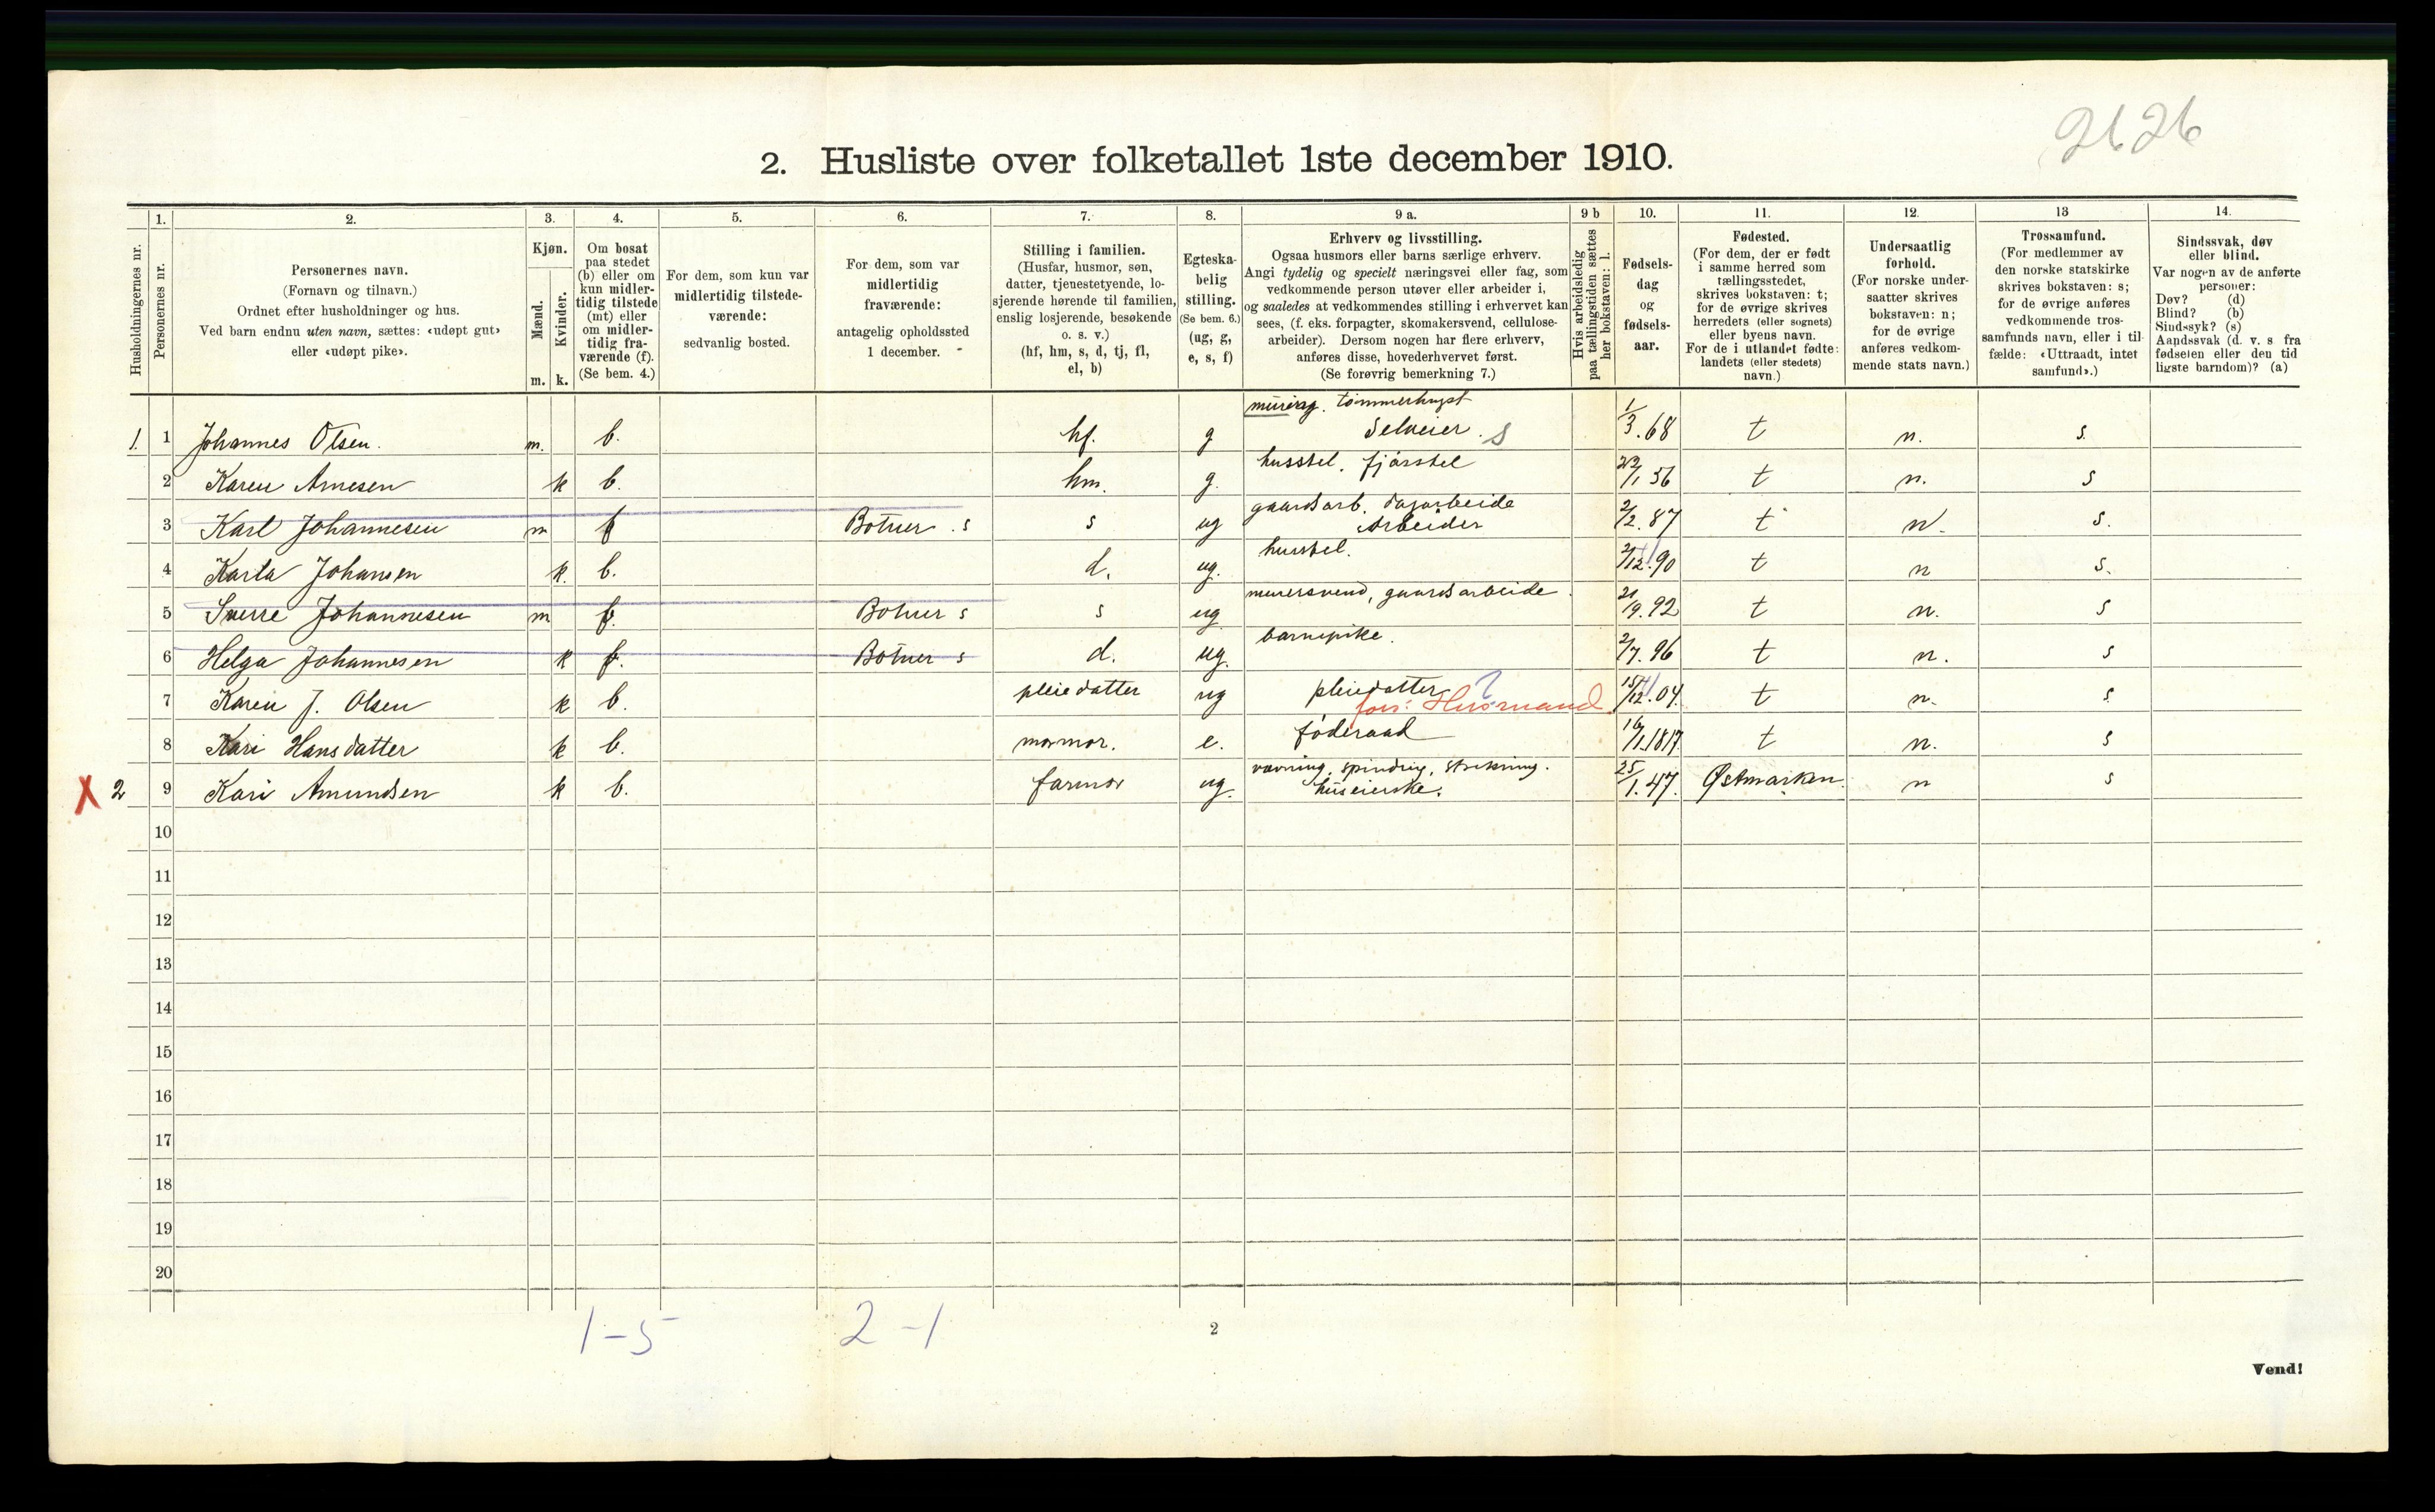 2626
2. Husliste over folketallet 1ste december 1910.
1. 2. 3. 4. 5. 6. 7. 8. 9 a. 9 b 10. 11. 12. 13 14.
Husholdningernes nr.
Personernes nr.
Personernes navn.
(Fornavn og tilnavn.)
Ordnet efter husholdninger og hus.
Ved barn endnu uten navn, sættes: «udøpt gut»
eller «udøpt pike».
Kjøn.
Mænd.
Kvinder.
m. k.
Om bosat
paa stedet
(b) eller om
kun midler-
tidig tilstede
(mt) eller
om midler-
tidig fra-
værende (f).
(Se bem. 4.)
For dem, som kun var
midlertidig tilstede-
værende:
sedvanlig bosted.
For dem, som var
midlertidig
fraværende:
antagelig opholdssted
1 december.
Stilling i familien.
(Husfar, husmor, søn,
datter, tjenestetyende, lo-
sjerende hørende til familien,
enslig losjerende, besøkende
o. s. v.)
(hf, hm, s, d, tj, fl,
el, b)
Egteska-
belig
stilling.
(Se bem. 6.)
(ug, g,
e, s, f)
Erhverv og livsstilling.
Ogsaa husmors eller barns særlige erhverv.
Angi tydelig og specielt næringsvei eller fag, som
vedkommende person utøver eller arbeider i,
og saaledes at vedkommendes stilling i erhvervet kan
sees, (f. eks. forpagter, skomakersvend, cellulose-
arbeider). Dersom nogen har flere erhverv,
anføres disse, hovederhvervet først.
(Se forøvrig bemerkning 7.)
Hvis arbeidsledig
paa tællingstiden sættes
her bokstaven: l.
Fødsels-
dag
og
fødsels-
aar.
Fødested.
(For dem, der er født
i samme herred som
tællingsstedet,
skrives bokstaven: t;
for de øvrige skrives
herredets (eller sognets)
eller byens navn.
For de i utlandet fødte:
landets (eller stedets)
navn.)
Undersaatlig
forhold.
(For norske under-
saatter skrives
bokstaven: n;
for de øvrige
anføres vedkom-
mende stats navn.)
Trossamfund.
(For medlemmer av
den norske statskirke
skrives bokstaven: s;
for de øvrige anføres
vedkommende tros-
samfunds navn, eller i til-
fælde: «Uttraadt, intet
samfund».)
Sindssvak, døv
eller blind.
Var nogen av de anførte
personer:
Døv? (d)
Blind? (b)
Sindssyk? (s)
Aandssvak (d. v. s fra
fødselen eller den tid
ligste barndom)? (a)
tømmerhugst
1. 1 Johannes Olsen. m. b. hf. g Selveier. S 1/3.68 t n. s.
husstel. fjøsstel
2 Karen Arnesen k b. hm. g. 22/1 56 t n. s
gaardsarb. dagarbeide
3 Karl Johannesen m f Botner. s s ug Arbeider 2/2.87 t n. s.
husstel.
4 Karla Johansen k. b. d. ug. 2/12.90 t n s.
murersvend, gaardsarbeide.
5 Sverre Johannesen m f. Botner s s ug 21/9.92 t n. s
barnepike.
6 Helga Johannesen k f. Botner s d. ug. 2/7.96 t n. s
7 Karen J. Olsen k b. pleiedatter ug pleiedatter ? 15/12.04. t n. s
fors: Husmand
8 Kari Hansdatter k b. mormor. e. føderaad 16/1.1817. t n. s
vævning, spinding, strikning.
X 2 9 Kari Amundsen k b. farmor ug. huseierske. 25/1.47. Østmarken. n s
10
11
12
13
14
15
16
17
18
19
20
1-5 2-1
2
Vend!